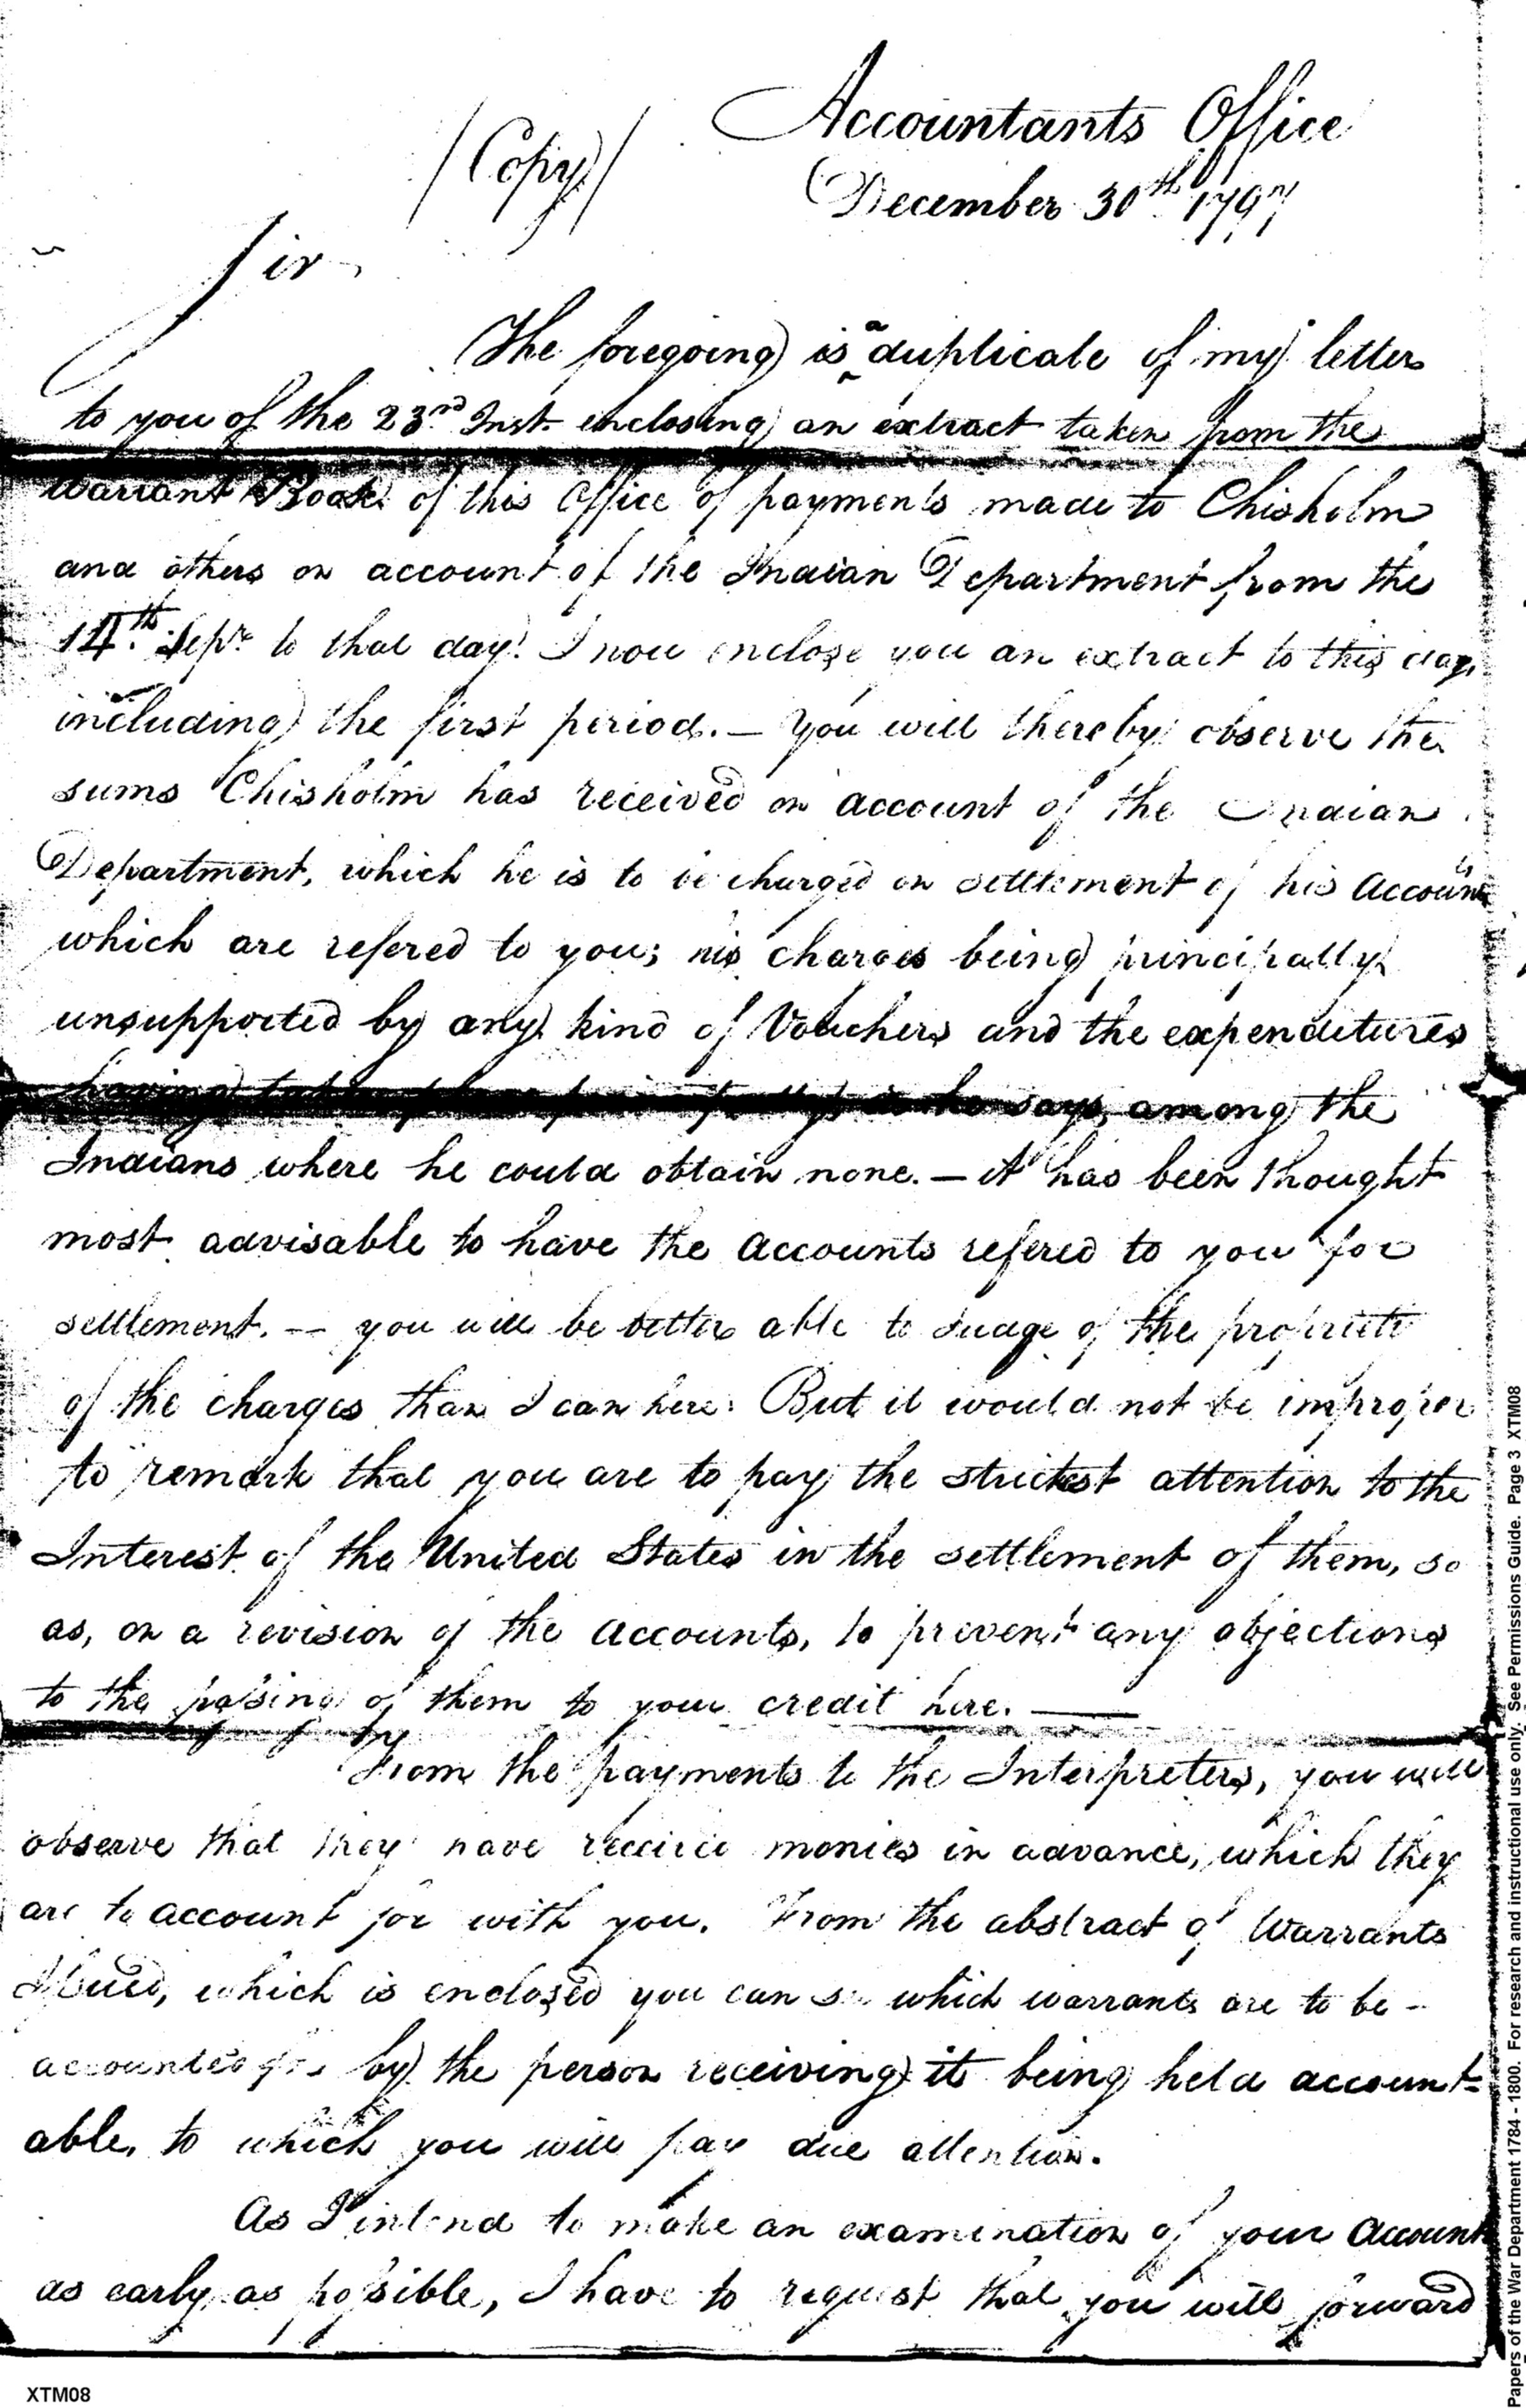 Accountants Office
/Copy/
December 30th 1797
Sir
The foregoing is a duplicate of my letter
to you of the 23rd Inst. enclosing an extract taken from the
Warrant Book of this Office of payments made to Chisholm
and others on account of the Indian Department from the
14th Sepr. to that day. I now enclose you an extract to this day,
including the first period. — You will thereby observe the
sums Chisholm has received on account of the Indian
Department, which he is to be charged on settlement of his Accounts
which are refered to you; his charges being principally
unsupported by any kind of Vouchers and the expenditures
having taken place principally as he says, among the
Indians where he could obtain none. — it has been thought
most advisable to have the accounts refered to you for
settlement. — you will be better able to Judge of the propriety
of the charges than I can here: But it would not be improper
to remark that you are to pay the strictest attention to the
Interest of the United States in the settlement of them, so
as, on a revision of the accounts, to prevent any objections
to the passing of them to your credit here. —
From the payments to the Interpreters, you will
observe that they have received monies in advance, which they
are to account for with you. From the abstract of Warrants
Issued, which is enclosed you can see which warrants are to be -
accounted for by the person receiving it being held account-
able, to which you will pay due attention.
As I intend to make an examination of your Accounts
as early as possible, I have to request that you will forward
Papers of the War Department 1784 - 1800. For research and instructional use only. See Permissions Guide. Page 3 XTM08
XTM08